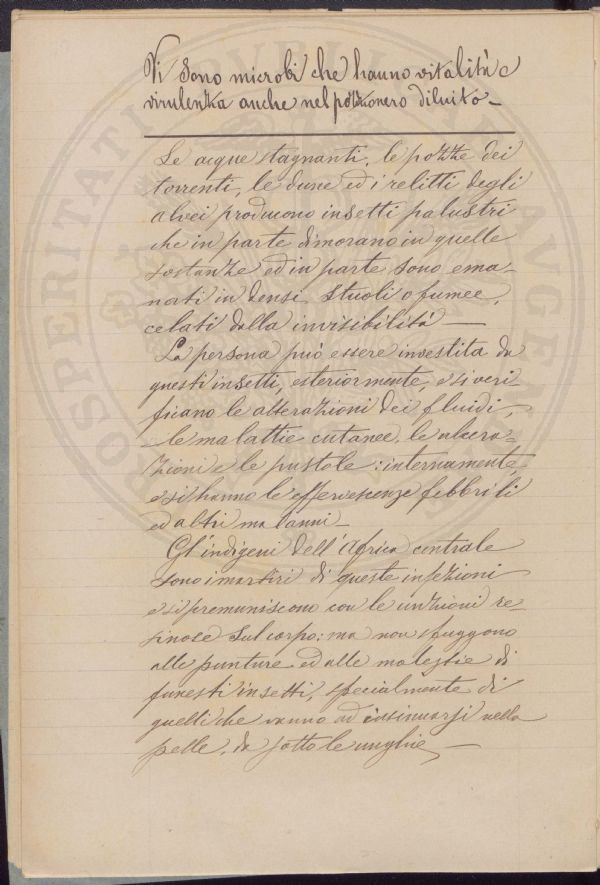 Vi sono microbi che hanno vitalità e
virulenza anche nel pozzonero diluito—
Le acque stagnanti, le pozze dei
torrenti, le dune ed i relitti degli
alvei producono insetti palustri
che in parte dimorano in quelle
sostanze ed in parte sono ema-
nati in densi stuoli o fumee,
celati dalla invisibilità—
La persona può essere investita da
questi insetti, esteriormente, e si veri
ficano le alterazioni dei fluidi,
le malattie cutanee, le ulcera-
zioni e le pustole: internamente,
e si hanno le effervescenze febbrili
ed altri malanni—
Gl'indigeni dell'Africa centrale
sono i martiri di queste infezioni
e si premuniscono con le unzioni re-
sinose sul corpo: ma non sfuggono
alle punture ed alle molestie di
funesti insetti, specialmente di
quelli che vanno ad insinuarsi nella
pelle, da sotto le unghie—
PROSPERITATI PVBLICAE AVGENDAE